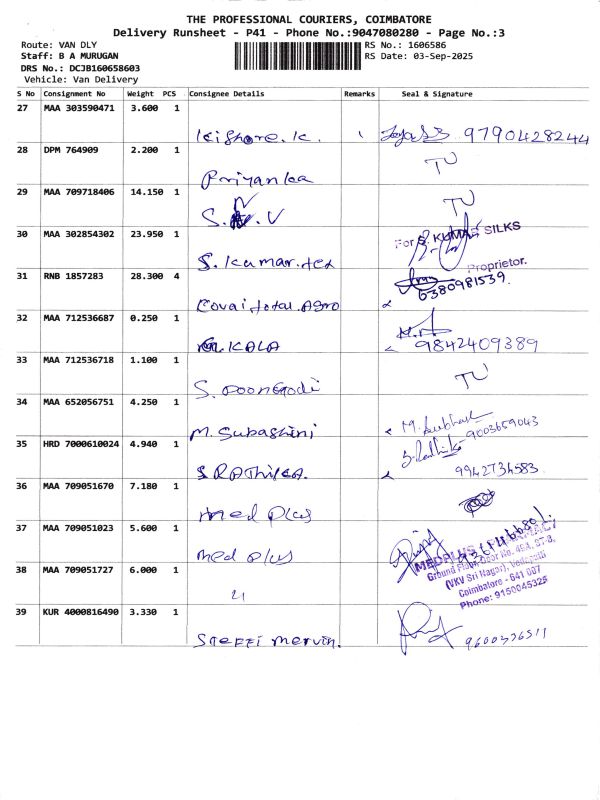 THE PROFESSIONAL COURIERS, COIMBATORE
Delivery Runsheet - P41 - Phone No.:9047080280 - Page No.:3
Route: VAN DLY
RS No.: 1606586
Staff: B A MURUGAN
RS Date: 03-Sep-2025
DRS No.: DCJB160658603
Vehicle: Van Delivery
S No Consignment No Weight PCS Consignee Details Remarks Seal & Signature
27 MAA 303590471 3.600 1
Kishore. K. 9790428244
28 DPM 764909 2.200 1
Priyanka TU
29 MAA 709718406 14.150 1
S. V TU
30 MAA 302854302 23.950 1
For S. KUMAR SILKS
S. Kumar. tex
Proprietor.
31 RNB 1857283 28.300 4
Covai total. Agro 6380981539
32 MAA 712536687 0.250 1
KALA 9842409389
33 MAA 712536718 1.100 1
S. Poongodi TU
34 MAA 652056751 4.250 1
M. Subashini 9003659043
35 HRD 7000610024 4.940 1
S RAThika. 9942734583
36 MAA 709051670 7.180 1
med plus
37 MAA 709051023 5.600 1
med plus
MEDPLUS PHARMACY
Ground Floor, Door No. 45A, 
(VKV Sri Nagar), 
Coimbatore - 641 007
Phone: 9150045325
38 MAA 709051727 6.000 1
39 KUR 4000816490 3.330 1
Steffi mervin. 9600326511